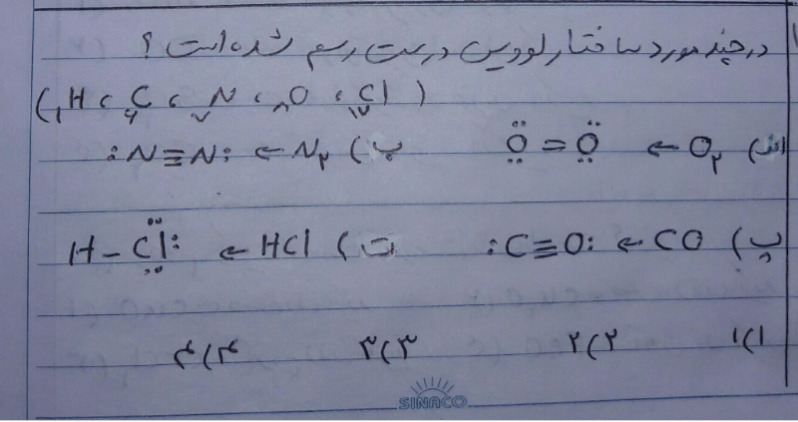 در چند مورد ساختار لوویس درست رسم شده است؟
(₁H ، ₆C ، ₇N ، ₈O ، ₁₇Cl)
الف) O₂ ← Ö̤ = Ö̤ ب) N₂ ← :N≡N:
پ) CO ← :C≡O: ت) HCl ← H–C̤̈l:
۱) ۱ ۲) ۲ ۳) ۳ ۴) ۴
SINACO